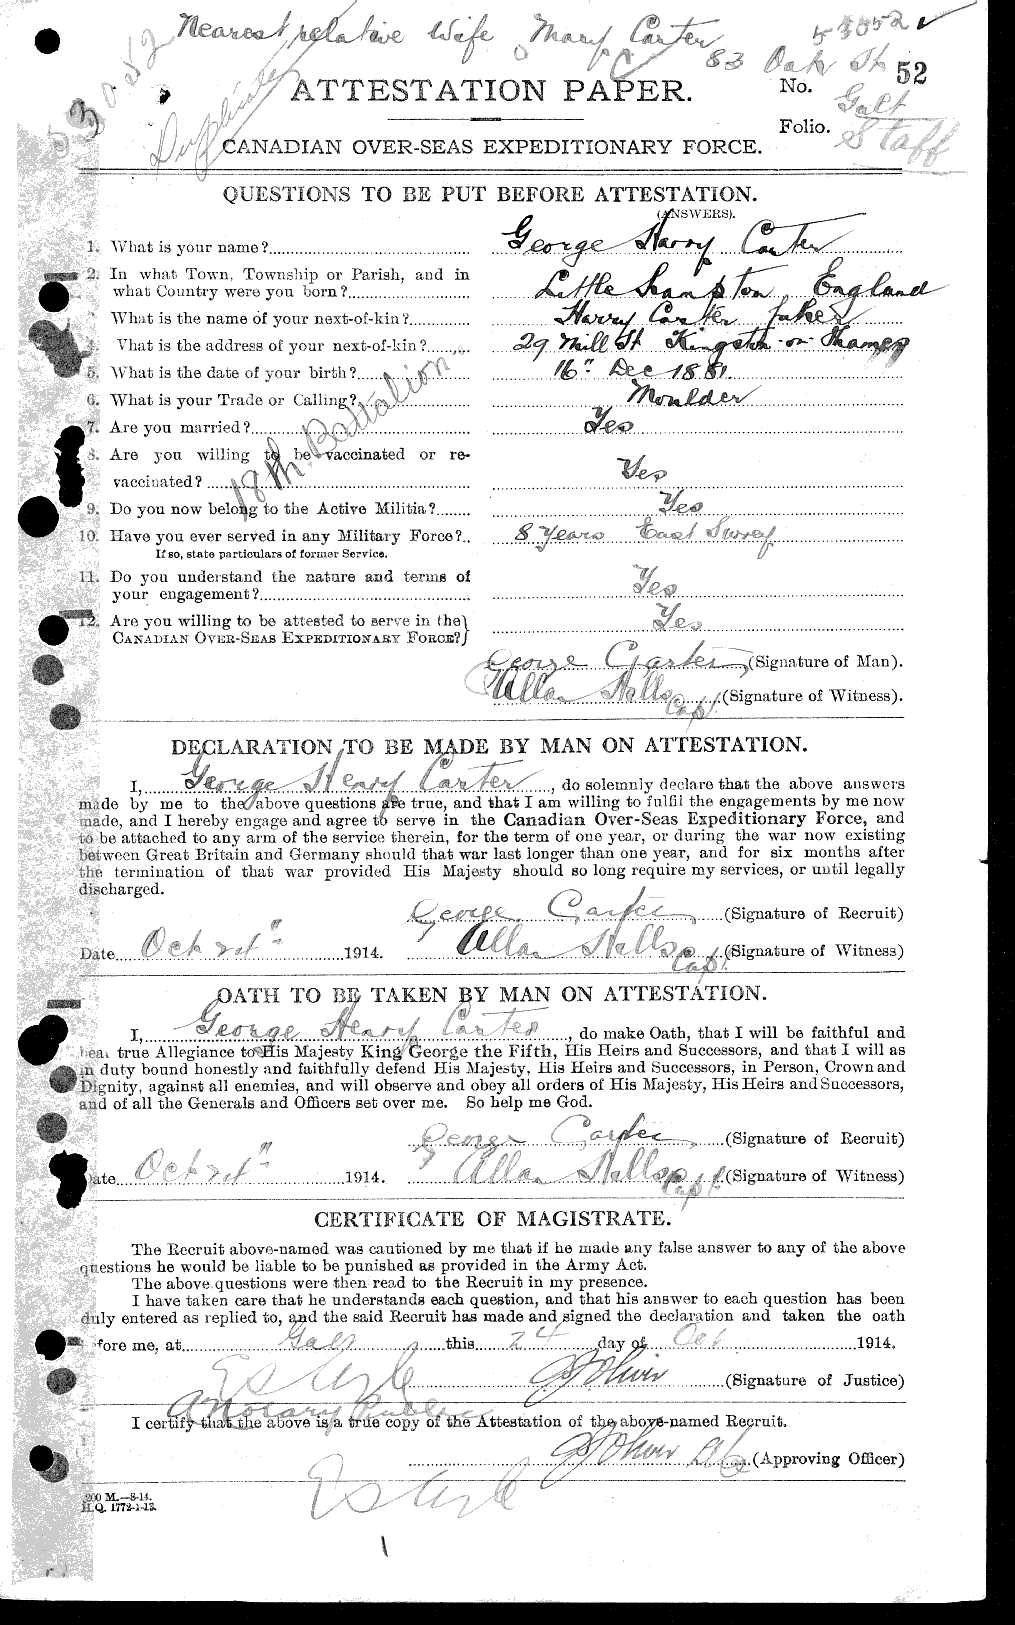 Nearest relative Wife Mary Carter
53052
83 Oak St
Galt
Duplicate
53052
ATTESTATION PAPER.
No. 52
Folio. Staff
CANADIAN OVER-SEAS EXPEDITIONARY FORCE.
QUESTIONS TO BE PUT BEFORE ATTESTATION.
(ANSWERS).
1. What is your name? George Harry Carter
2. In what Town, Township or Parish, and in
what Country were you born? Little Hampton, England
What is the name of your next-of-kin? Harry Carter father
What is the address of your next-of-kin? 29 Mill St Kingston-on-Thames
5. What is the date of your birth? 16" Dec 1881
6. What is your Trade or Calling? Moulder
7. Are you married? Yes
8. Are you willing to be vaccinated or re-
vaccinated? Yes
9. Do you now belong to the Active Militia? Yes
10. Have you ever served in any Military Force? 8 Years East Surrey
If so, state particulars of former Service.
11. Do you understand the nature and terms of
your engagement? Yes
12. Are you willing to be attested to serve in the
CANADIAN OVER-SEAS EXPEDITIONARY FORCE? Yes
18th Battalion
George Carter (Signature of Man).
Allan Capt. (Signature of Witness).
DECLARATION TO BE MADE BY MAN ON ATTESTATION.
I, George Henry Carter, do solemnly declare that the above answers
made by me to the above questions are true, and that I am willing to fulfil the engagements by me now
made, and I hereby engage and agree to serve in the Canadian Over-Seas Expeditionary Force, and
to be attached to any arm of the service therein, for the term of one year, or during the war now existing
between Great Britain and Germany should that war last longer than one year, and for six months after
the termination of that war provided His Majesty should so long require my services, or until legally
discharged.
George Carter (Signature of Recruit)
Date Oct 24" 1914. Allan Capt. (Signature of Witness)
OATH TO BE TAKEN BY MAN ON ATTESTATION.
I, George Henry Carter, do make Oath, that I will be faithful and
bear true Allegiance to His Majesty King George the Fifth, His Heirs and Successors, and that I will as
in duty bound honestly and faithfully defend His Majesty, His Heirs and Successors, in Person, Crown and
Dignity, against all enemies, and will observe and obey all orders of His Majesty, His Heirs and Successors,
and of all the Generals and Officers set over me. So help me God.
George Carter (Signature of Recruit)
Date Oct 24" 1914. Allan Capt. (Signature of Witness)
CERTIFICATE OF MAGISTRATE.
The Recruit above-named was cautioned by me that if he made any false answer to any of the above
questions he would be liable to be punished as provided in the Army Act.
The above questions were then read to the Recruit in my presence.
I have taken care that he understands each question, and that his answer to each question has been
duly entered as replied to, and the said Recruit has made and signed the declaration and taken the oath
before me, at Galt this 24 day of Oct 1914.
(Signature of Justice)
A Notary Public
I certify that the above is a true copy of the Attestation of the above-named Recruit.
(Approving Officer)
200 M.—8-14.
H.Q. 1772-1-13.